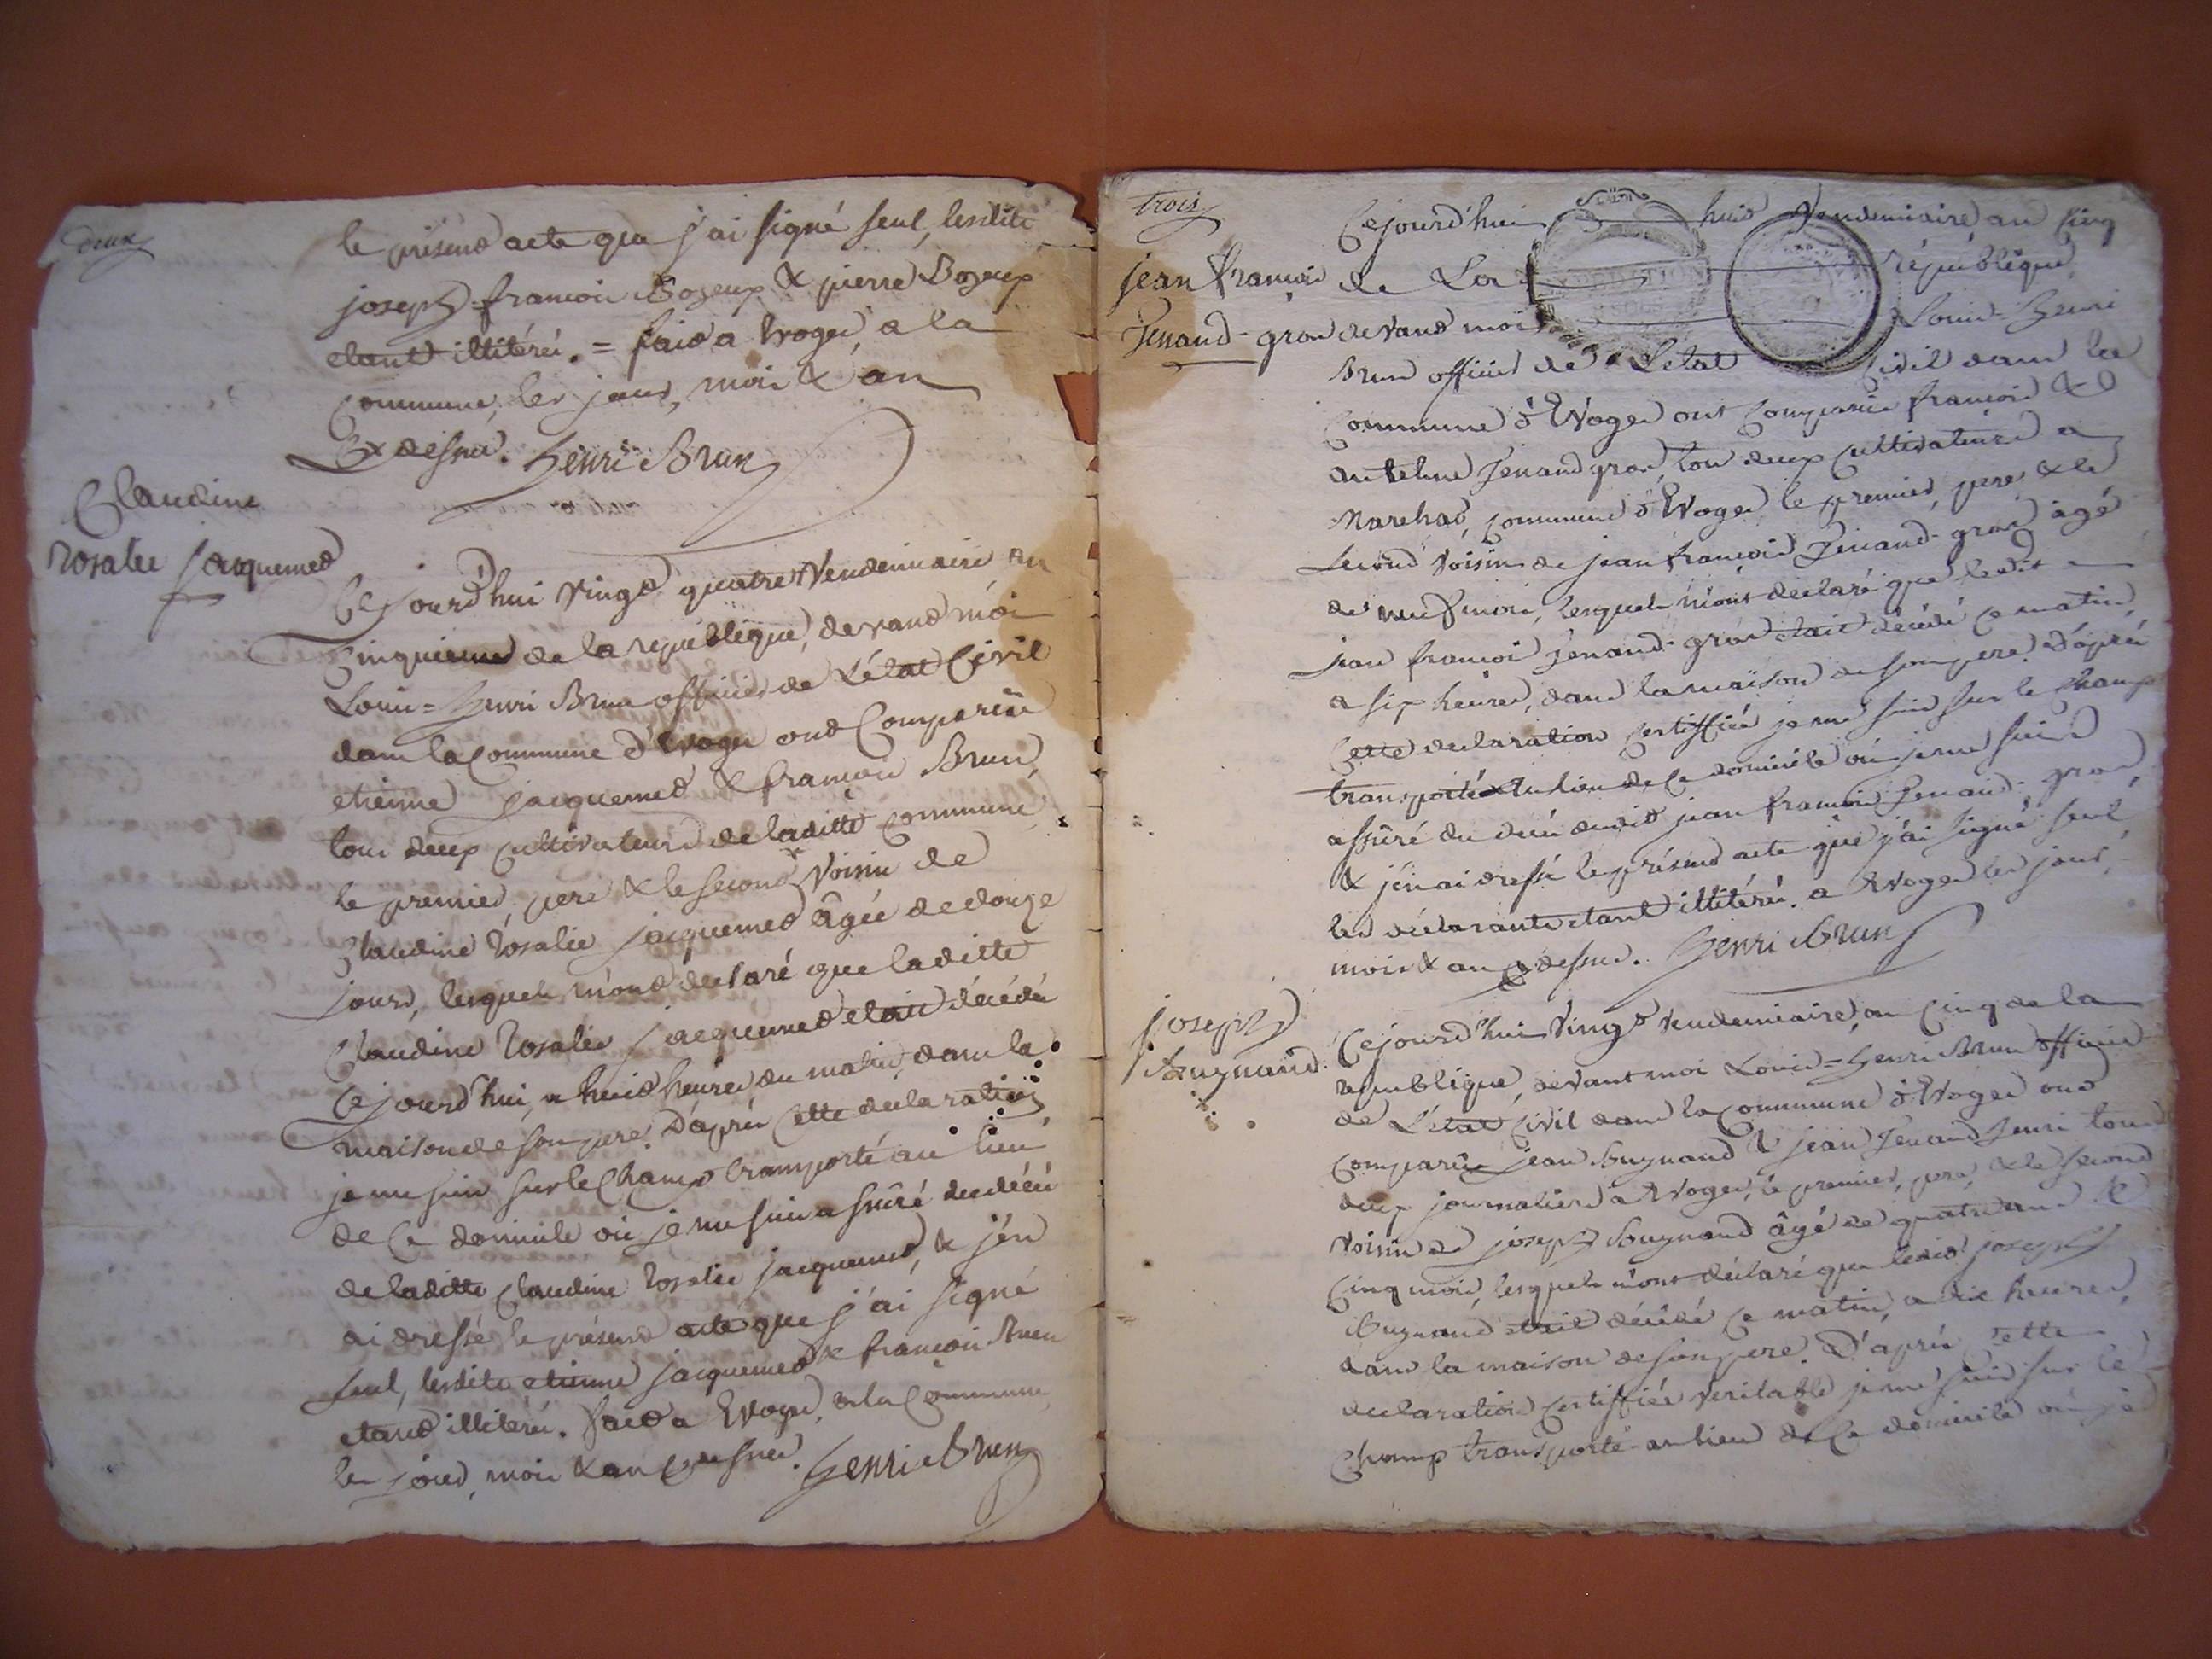 deux
le présent acte que j'ai signé seul, lesdits
joseph-françois Bozeup & pierre Bozeup
etant illitérés. = fait a Evoges, a la
Commune, les jour, mois & an
Cy dessus. henri Brun
Claudine
rosalie jacquemet
Cejourd'hui vingt quatre Vendemiaire an
Cinquieme de la republique, devant moi
Louis=henri Brun officier de L'état Civil
dans la Commune d'Evoges ont Comparus
etienne jacquemet & françois Brun,
tous deux Cultivateurs de laditte Commune
le premier, pere & le second Voisin de
Claudine rosalie jacquemet âgée de douze
jours, lesquels m'ont déclaré que laditte
Claudine rosalie jacquemet etait décédée
Cejourd'hui, a huit heures du matin, dans la
maison de son pere. D'après Cette déclaration
je me suis sur le Champ transporté au lieu
de Ce domicile où je me suis assuré du décès
de laditte Claudine rosalie jacquemet, & j'en
ai dressé le présent acte que j'ai signé
seul, lesdits etienne jacquemet & françois Brun
etant illitérés. fait a Evoges, a la Commune
les jour, mois & an Cy dessus. henri Brun
trois
Cejourd'hui huit Vendemiaire an Cinq
jean françois
de La république
Jenand-gros
devant moi Louis=henri
Brun officier de L'etat Civil dans la
Commune d'Evoges ont Comparus françois &
antelme Jenand gros, tous deux Cultivateurs a
Narehat, Commune d'Evoges le premier, pere & le
second Voisin de jean françois Jenand-gros âgé
de neuf mois, lesquels m'ont déclaré que ledit
jean françois Jenand-gros etait décédé ce matin,
a six heures, dans la maison de son pere. D'après
Cette déclaration Certiffiée je me suis sur le Champ
transporté au lieu de Ce domicile où je me suis
assûré du décès dudit jean françois Jenand-gros,
& j'en ai dressé le présent acte que j'ai signé seul,
les déclarants etant illitérés. a Evoges les jour,
mois & an Cy dessus. henri Brun
joseph
Bugnand.
Cejourd'hui Vingt Vendemiaire an Cinq de la
republique, devant moi Louis=henri Brun officier
de L'état Civil dans la Commune d'Evoges ont
Comparus jean Bugnand & jean Jenand tous
deux journaliers a Evoges, le premier, pere, & le second
Voisin de joseph Bugnand âgé de quatre ans &
Cinq mois, lesquels m'ont déclaré que ledit joseph
Bugnand etait décédé Ce matin, a dix heures,
dans la maison de son pere. D'après cette
déclaration Certiffiée Veritable je me suis sur le
Champ transporté au lieu de Ce domicile où je